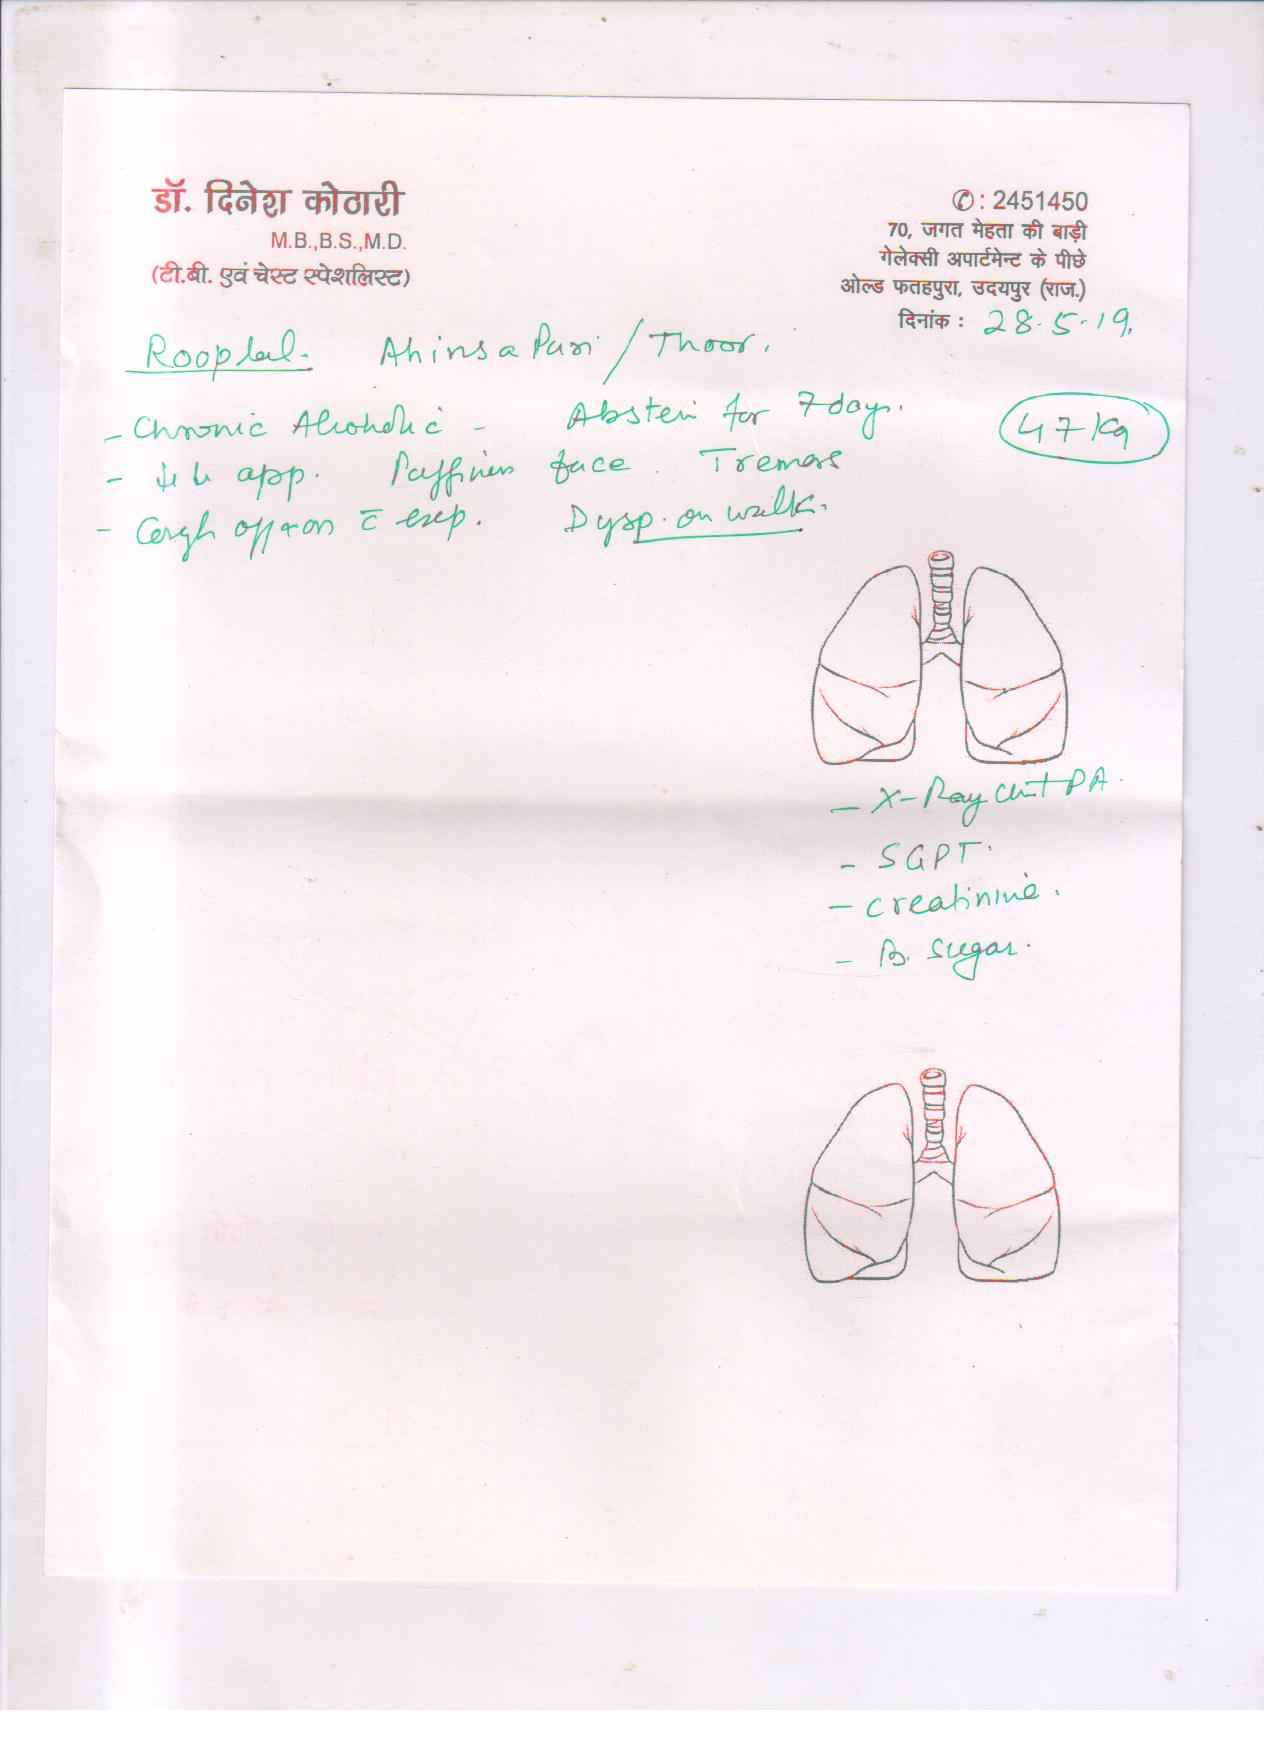 डॉ. दिनेश कोठारी
M.B.,B.S.,M.D.
(टी.बी. एवं चेस्ट स्पेशलिस्ट)
✆: 2451450
70, जगत मेहता की बाड़ी
गेलेक्सी अपार्टमेन्ट के पीछे
ओल्ड फतहपुरा, उदयपुर (राज.)
दिनांक : 28.5.19.
Rooplal. Ahinsa Puri / Thoor.
- Chronic Alcoholic - Abstein for 7 days. 47 Kg
- app. Puffiness face. Tremors
- Cough off + on c̄ exp. Dysp. on walk.
- X-Ray Chest PA.
- SGPT.
- Creatinine.
- B. Sugar.